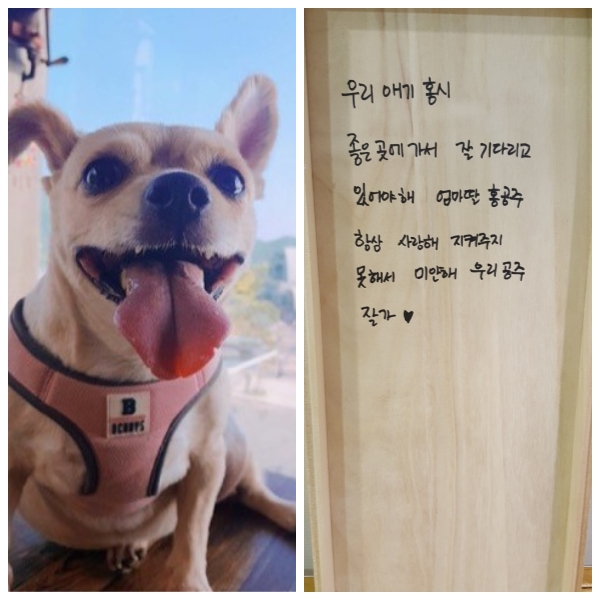 B
BCHUYS
우리 애기 홍시
좋은 곳에 가서 잘 기다리고
있어야해 엄마딸 홍공주
항상 사랑해 지켜주지
못해서 미안해 우리 공주
잘가 ♥